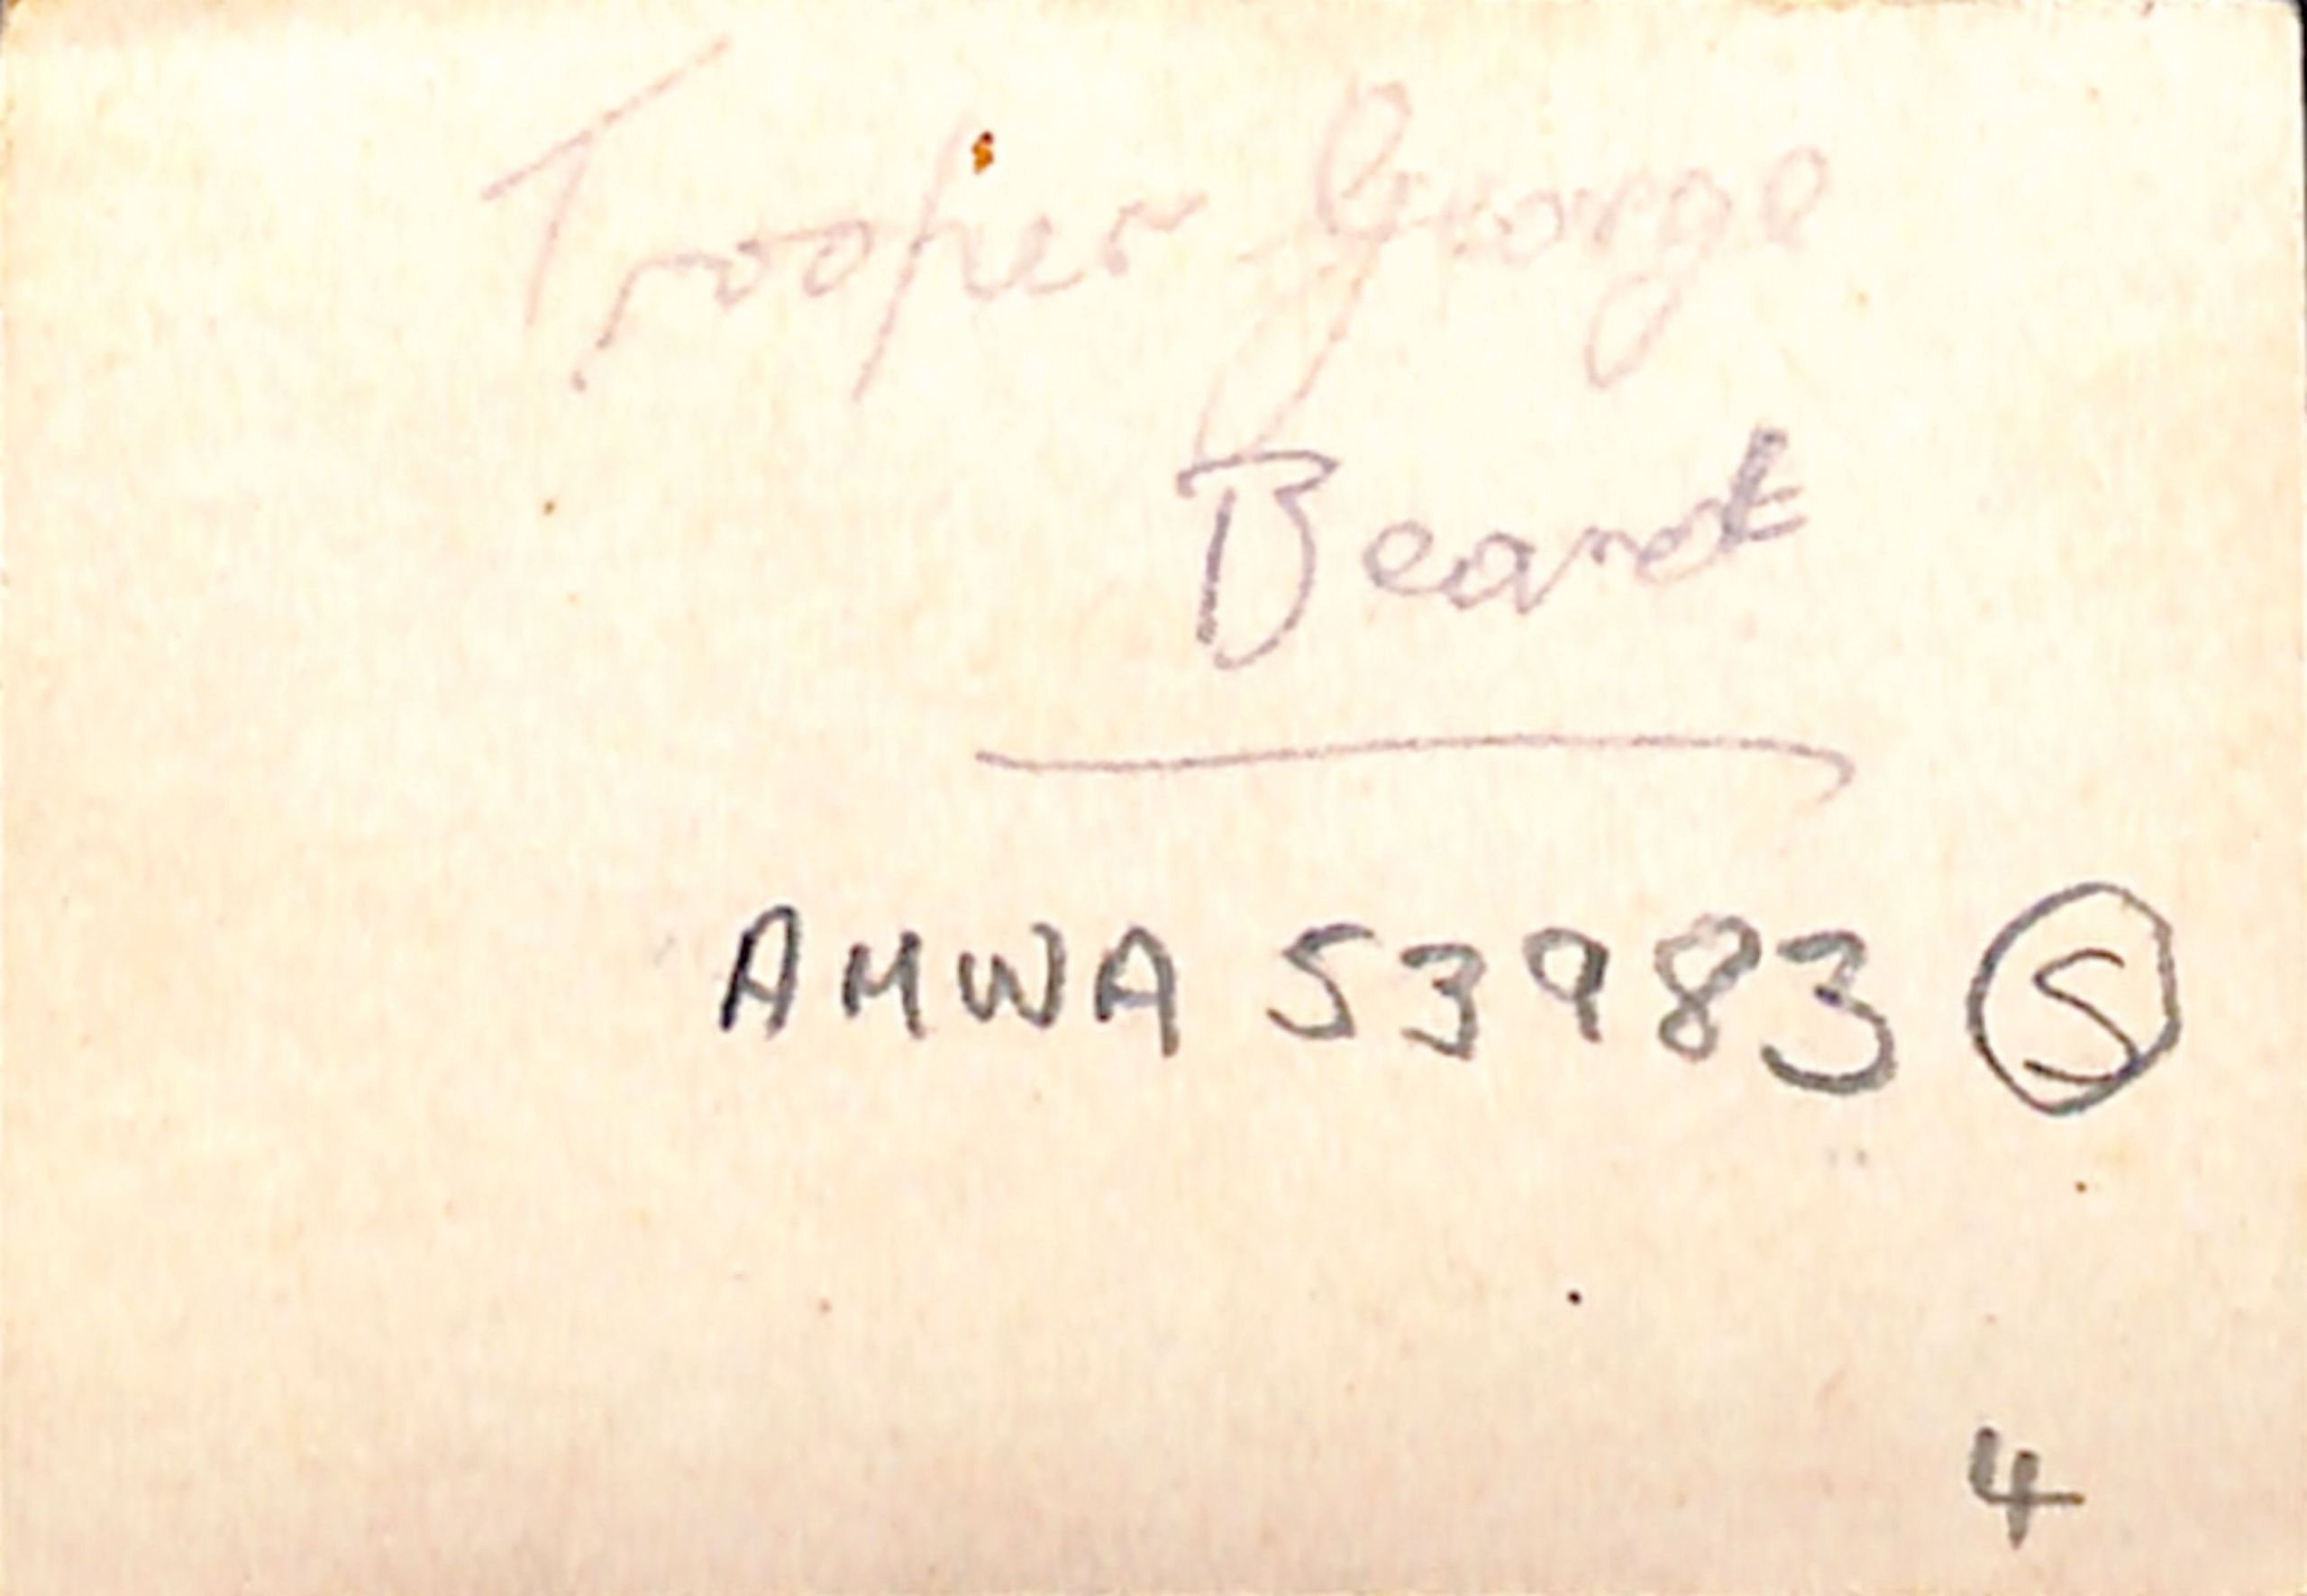 Trooper George
Beard
AMWA 53983 Ⓢ
4